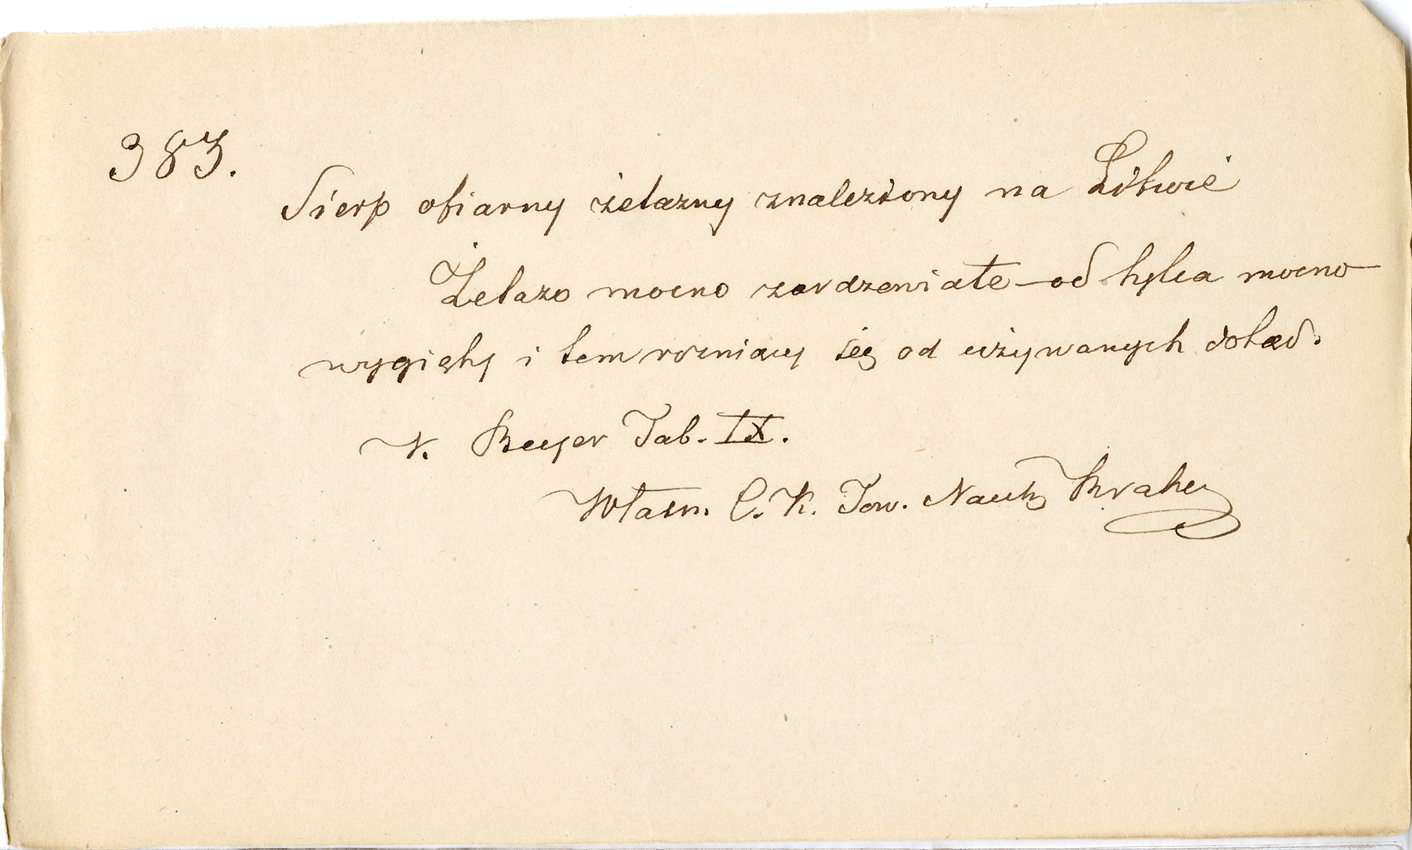 383.
Sierp ofiarny żelazny znaleziony na Litwie
Żelazo mocno zardzewiałe – od tylca mocno
wygięty i tem rózniący się od używanych dotąd.
N. Beyer Tab. IX.
Własn. C. K. Tow. Nauk Krak